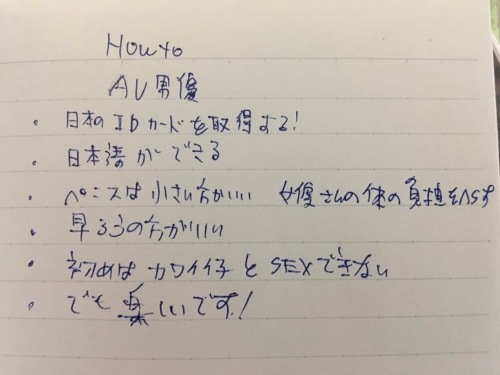 Howto
AV男優
・日本のIDカードを取得する!
・日本語ができる
・ペニスは小さい方がいい 女優さんの体の負担をへらす
・早ろうの方がいい
・初めはカワイイ子とSEXできない
・でも楽しいです!